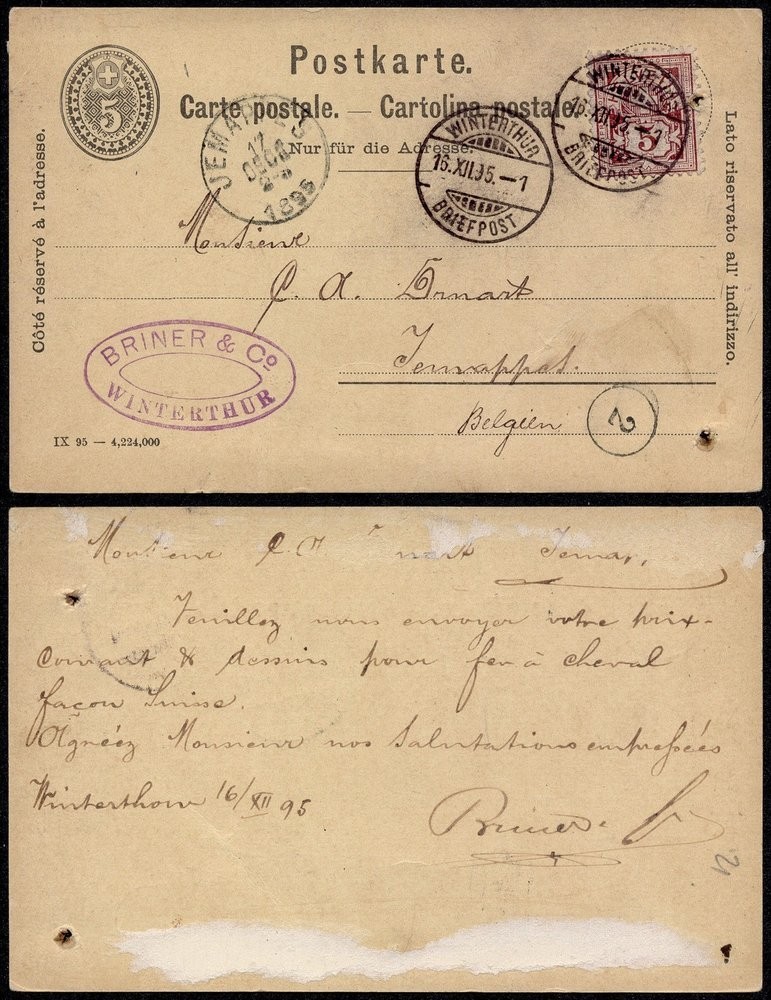 Postkarte.
Carte postale. — Cartolina postale.
Nur für die Adresse.
5
JEMAPPES
17
DEC
1895
WINTERTHUR
16.XII.95.—1
BRIEFPOST
WINTERTHUR
16.XII.95.—1
BRIEFPOST
5
Côté réservé à l'adresse.
Lato riservato all' indirizzo.
Monsieur
C. A. Ernart
Jemappes.
Belgien
2
BRINER & Co
WINTERTHUR
IX 95 — 4,224,000
Monsieur C. A. nart Jemap.
Veuillez nous envoyer votre prix-
courant & dessins pour fer à cheval
façon Suisse.
Agréez Monsieur nos Salutations empressées
Winterthour 16/XII 95
Briner & Co
21